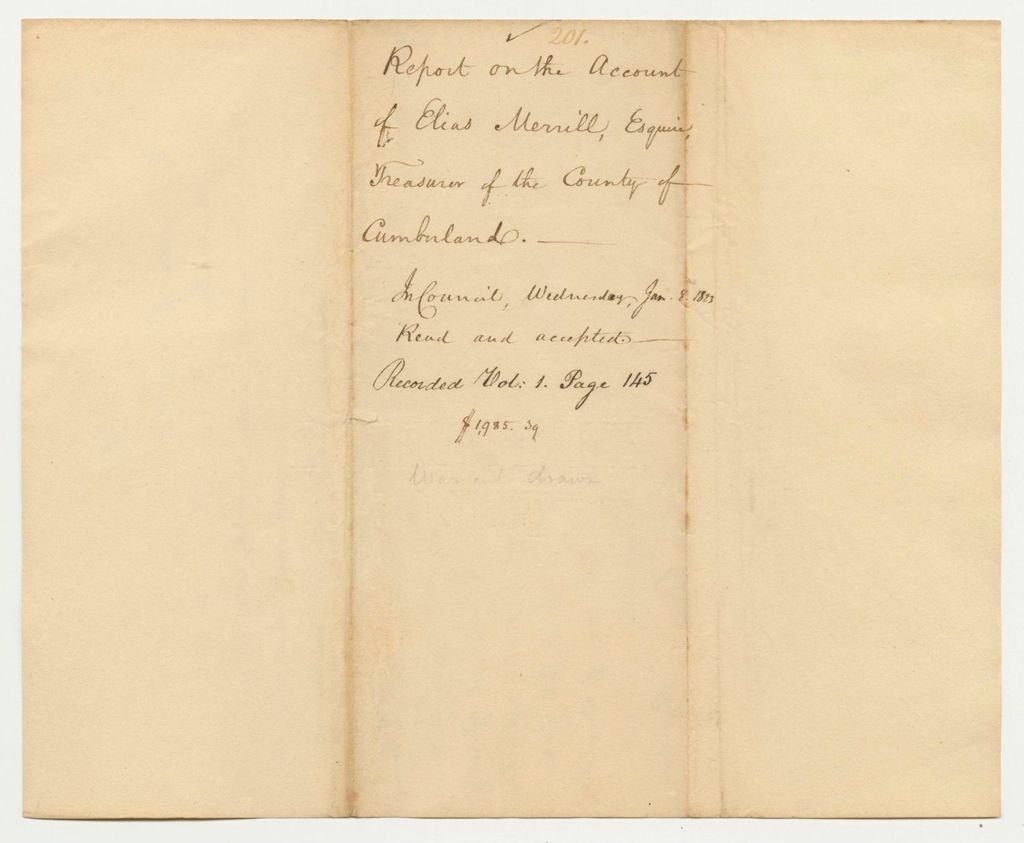 ✓ 201.
Report on the Account
of Elias Merrill, Esquire,
Treasurer of the County of
Cumberland. —
In Council, Wednesday, Jan. 8. 1823
Read and accepted. —
Recorded Vol: 1. Page 145
$1,985. 39
Warrant drawn